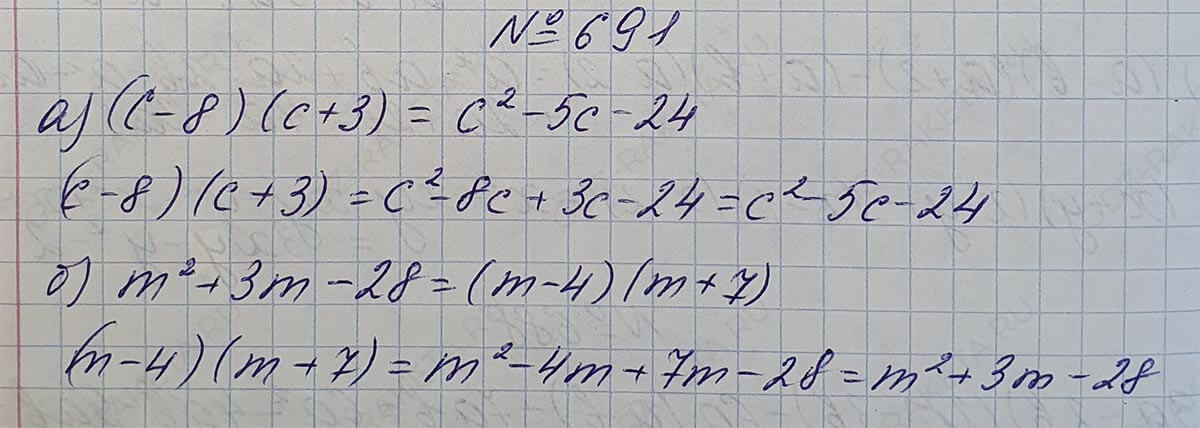 №691
а) (c-8)(c+3) = c²-5c-24
(c-8)(c+3) = c²-8c+3c-24 = c²-5c-24
б) m²+3m-28 = (m-4)(m+7)
(m-4)(m+7) = m²-4m+7m-28 = m²+3m-28